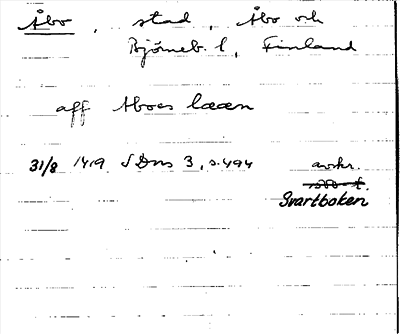 Åbo, stad, Åbo och
Bjørneb. l, Finland
aff Aboes lææn
31/8 1419 SDns 3, s.494 avskr.
Svartboken